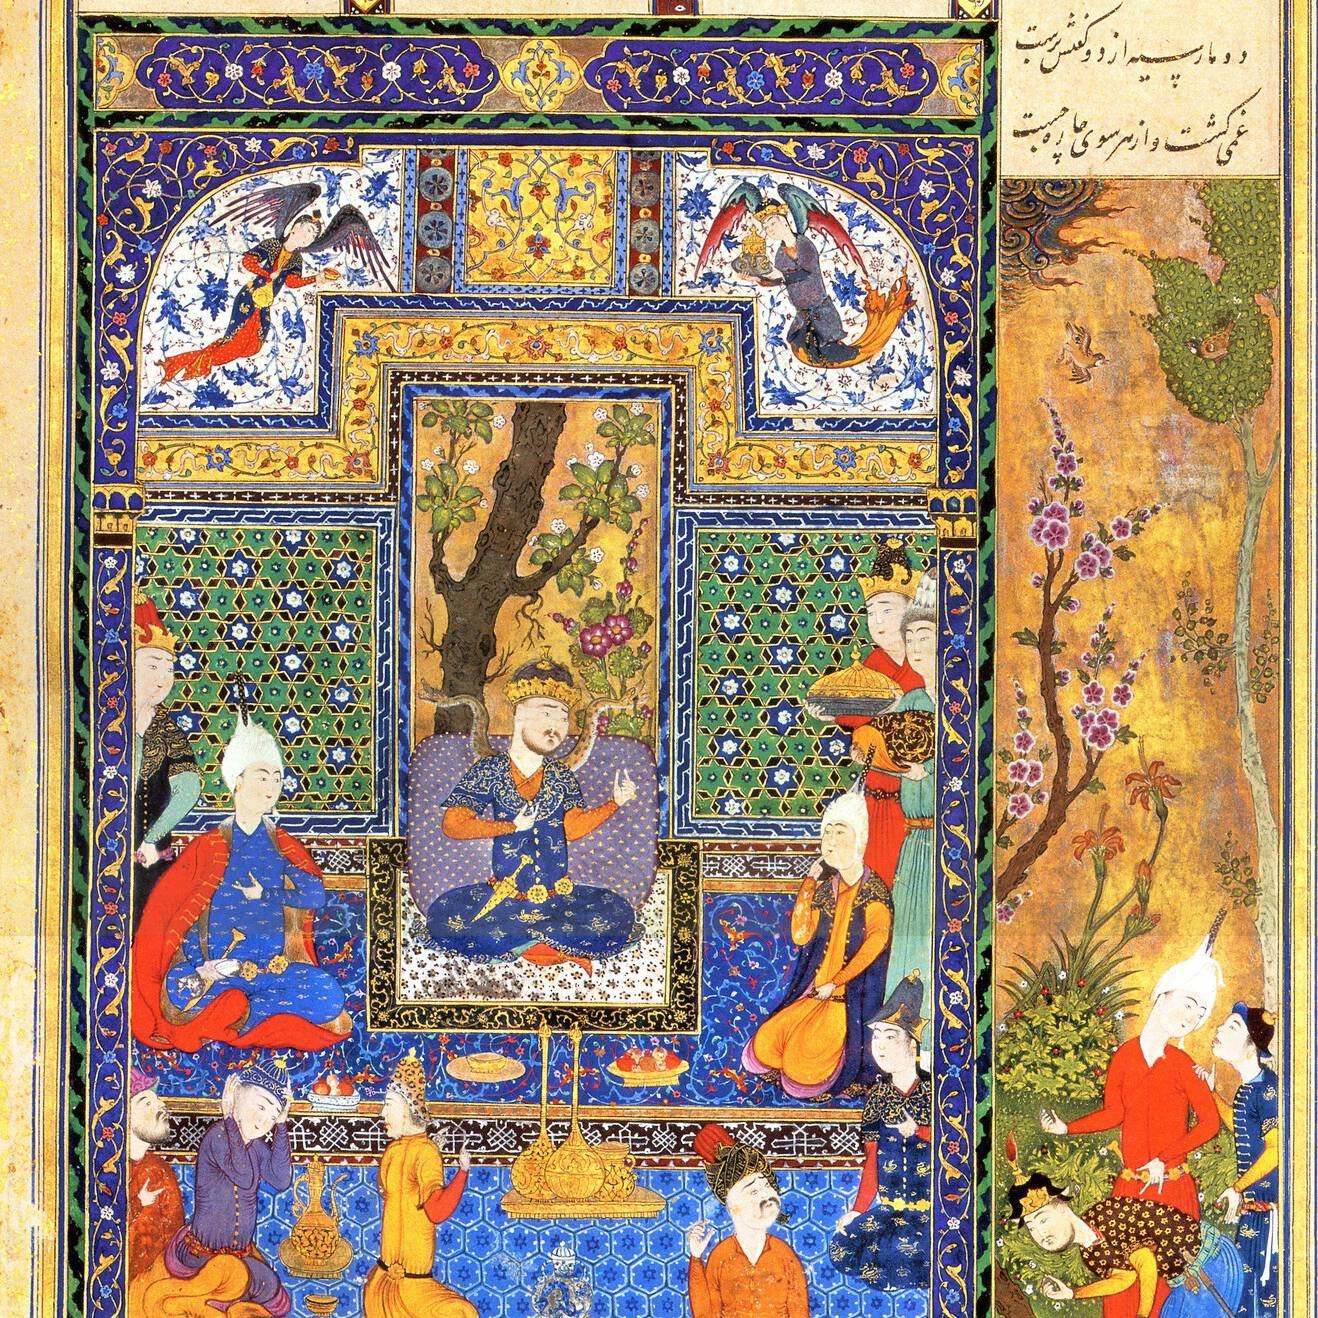 دو مار سیه از دو کتفش برست
غمی گشت و از هر سوی چاره جست